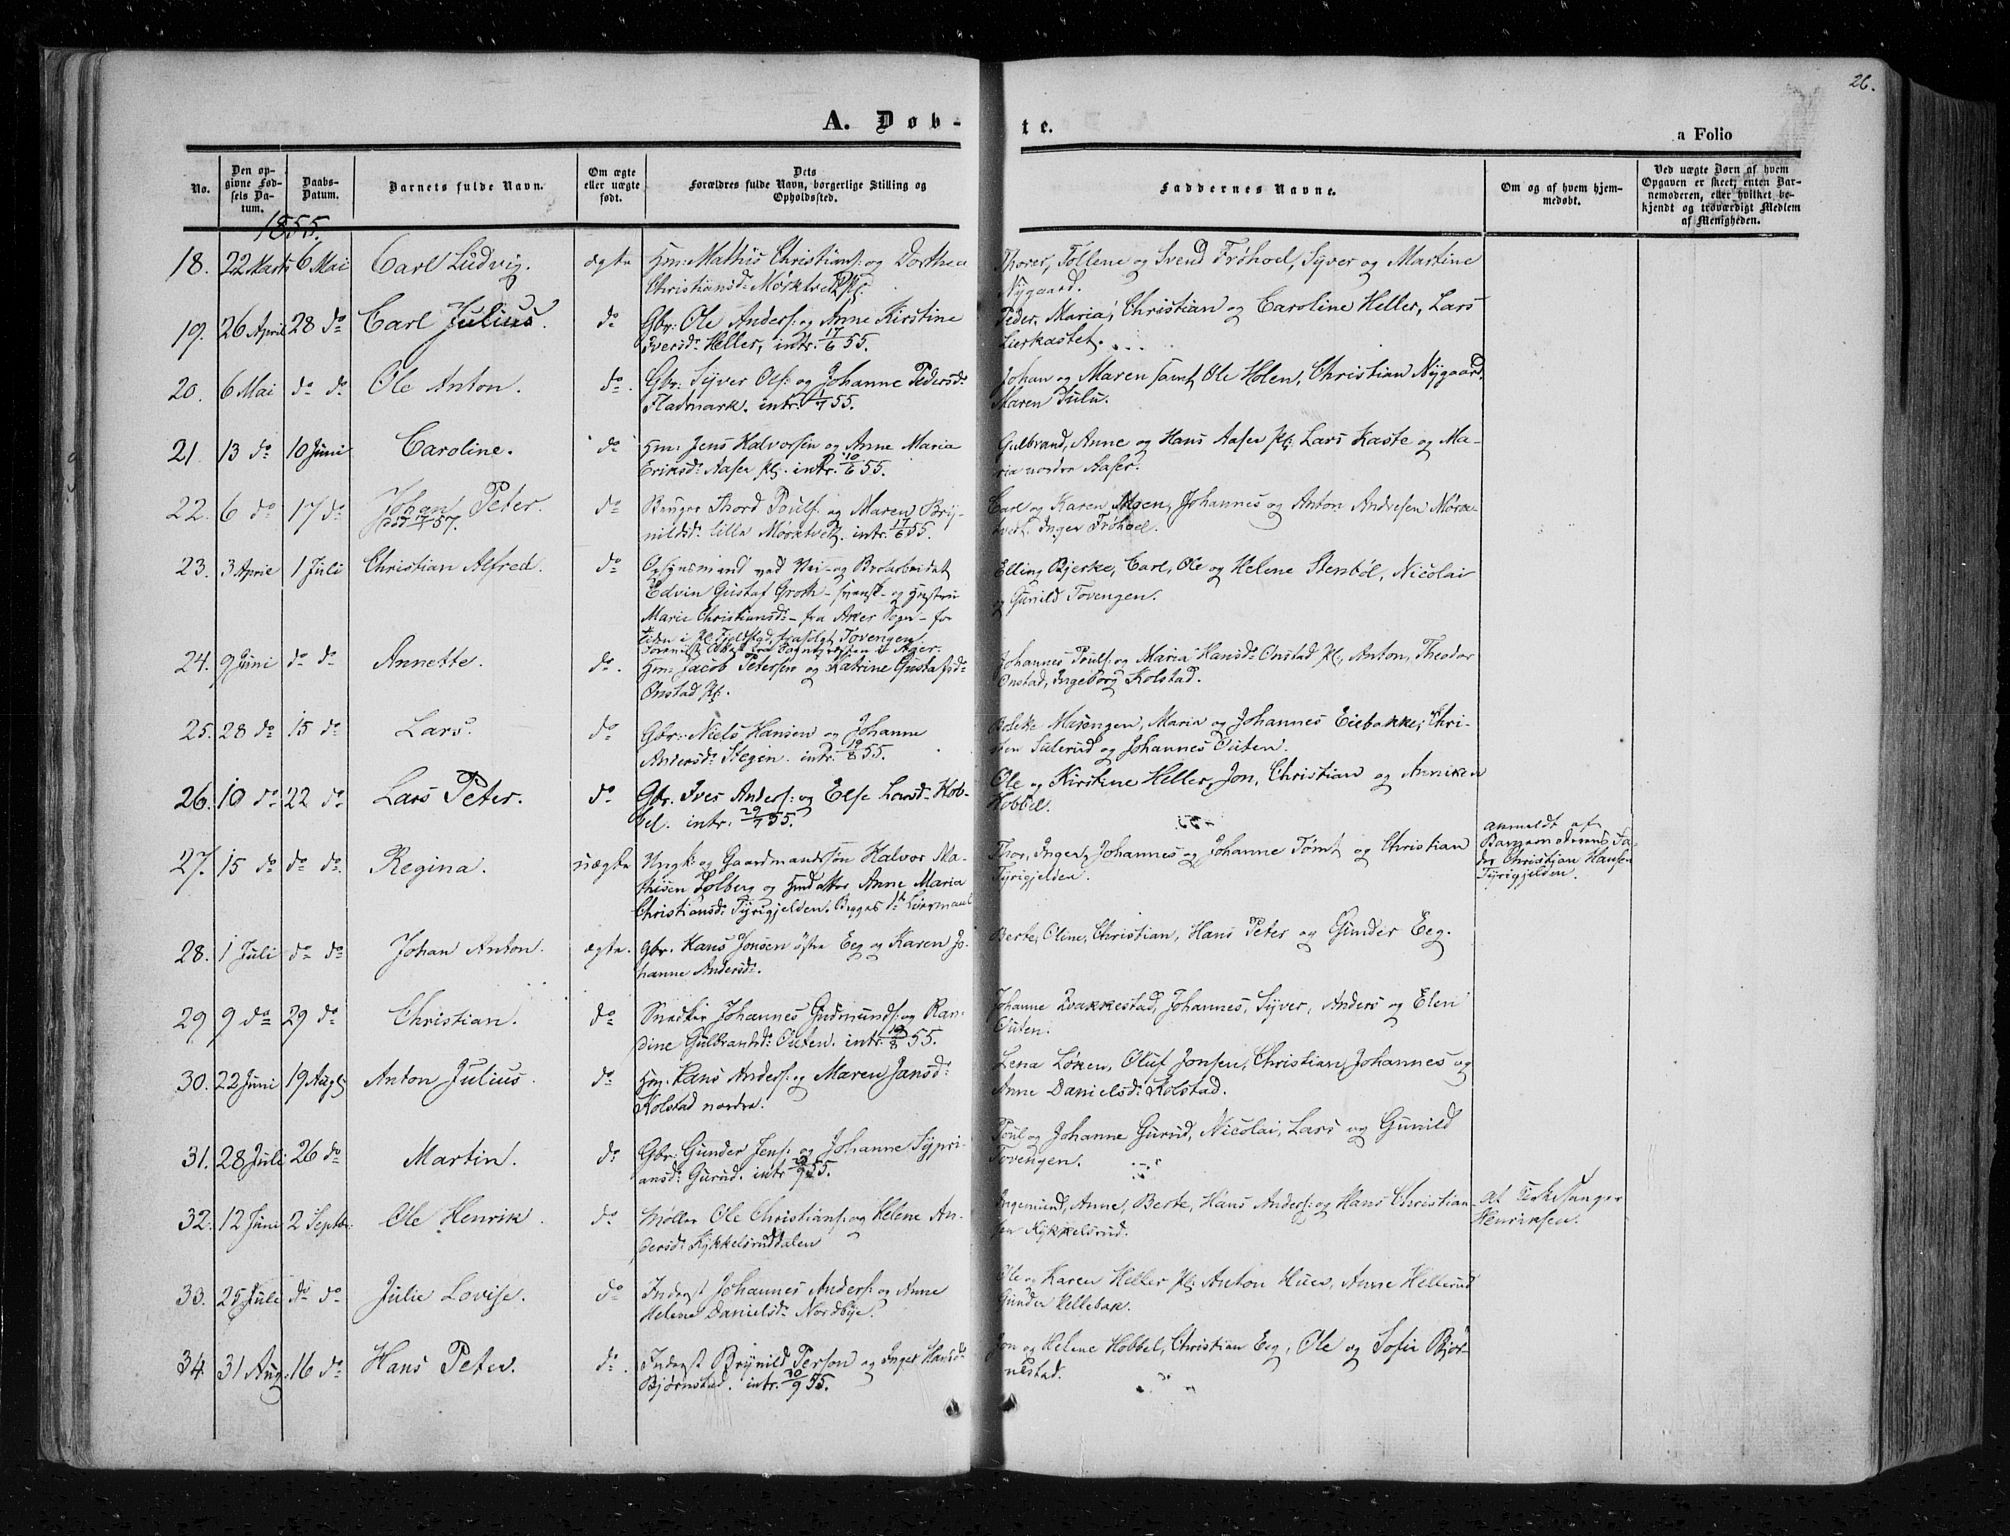 26.
A. Døb-
te.
a Folio
No.
Den op-
givne Fød-
sels Da-
tum.
Daabs-
Datum.
Barnets fulde Navn.
Om ægte
eller uægte
født.
Dets
Forældres fulde Navn, borgerlige Stilling og
Opholdssted.
Faddernes Navne.
Om og af hvem hjem-
medøbt.
Ved uægte Børn af hvem
Opgaven er skeet; enten Bar-
nemoderen, eller hvilket be-
kjendt og troværdigt Medlem
af Menigheden.
1855.
18. 22 Marts 6 Mai Carl Ludvig. ægte Hm: Mathis Christians: og Dorthea
Christiansd: Mørktvedt Pl.
Thorer, Tollene og Svend Frøhoel, Syver og Martine
Nygaard.
19. 26 April 28 do Carl Julius. do Gbr: Ole Anders: og Anne Kirstine
Iversd: Heller, intr. 17/6 55.
Peder, Maria, Christian og Caroline Heller, Lars
Lierkastet.
20. 6 Mai do do Ole Anton. do. Gbr: Syver Ols: og Johanne Pedersd:
Fladmark. intr. 1/7 55.
Johan og Maren samt Ole Holen, Christian Nygaard,
Maren Tulu.
21. 13 do 10 Juni Caroline. do Hm: Jens Halvorsen og Anne Maria
Eriksd: Aaser pl. intr. 10/6 55.
Gulbrand, Anne og Hans Aaser Pl: Lars Kaste og Ma-
ria nordre Aaser.
22. 6 do 17 do Johan Peter. do Bruger Thord Pouls: og Maren Bry-
nildsd: lille Mørktvedt. intr. 17/6 55.
Carl og Karen Moen, Johannes og Anton Andresen Mørk-
tvedt, Inger Frøhoel.
23. 3 April 1 Juli Christian Alfred. do Opsynsmand ved Vei- og Broarbeidet
Edvin Gustaf Groth - svensk - og Hustru
Marie Christiansd: - fra Aker Sogn - for
Tiden i Pl. Fjeldstad, trafolgt Tovengen.
Elling Bjerke, Carl, Ole og Helene Stenbøl, Nicolai
og Gunild Tovengen.
24. 9 Juni do do Annette. do. Hm: Jacob Petersen og Katrine Gustafsd:
Onstad pl.
Johannes Pouls: og Maria Hansd: Onstad Pl., Anton, Theodor
Onstad, Ingeborg Kolstad.
25. 28 do 15 do Lars. do Gbr: Niels Hansen og Johanne
Andersd: Stegen. intr. 19/8 55.
Maria og Johannes Eiebakke, Chri-
Sulerud og Johannes Outen.
26. 10 do 22 do Lars Peter. do Gbr. Iver Anders: og Else Larsd: Hob-
bel. intr. 29/7 55.
Ole og Kirstine Heller, Jon, Christian og Anniken
Hobbel.
27. 15 do do do. Regina. uægte Ungk: og Gaardmandssøn Halvor Ma-
thisen Solberg og Hmdatter Anne Maria
Christiansd: Tyrigjelden. Begges 1ste Leiermaal
Thor, Inger, Johannes og Johanne Tømt og Christian
Tyrigjelden.
anmeldt af
Barnemoderens Fa-
der Christian Hansen
Tyrigjelden.
28. 1 Juli do do Johan Anton. ægte. Gbr. Hans Jensen østre Eeg og Karen Jo-
hanne Andersd:
Berte, Oline, Christian, Hans Peter og Gunder Eeg.
29. 9 do 29 do Christian. do Snedker Johannes Gudmunds: og Ran-
dine Gulbrandsd: Outen. intr. 19/8 55.
Johanne Brakkestad, Johannes, Syver, Anders og Elen
Outen.
30. 22 Juni 19 Augs Anton Julius. do Hm: Hans Anders: og Maren Jansd:
Kolstad nordre.
Lena Løken, Oluf Jonsen, Christian, Johannes og
Anne Danielsd: Kolstad.
31. 28 Juli 26 do Martin. do Gbr: Gunder Jens: og Johanne Sypri-
ansd: Gurud. intr. 55.
Poul og Johanne Gurud, Nicolai, Lars og Gunild
Tovengen.
32. 12 Juni 2 Septbr Ole Henrik. do Møller Ole Christians: og Helene An-
dersd: Kykkelsruddalen
Ingemund, Anne, Berte, Hans Anders: og Hans Christian-
sen Kykkelsrud.
af Kirkesanger
Henriksen.
33. 25 Juli do do Julie Lovise. do Inderst Johannes Anders: og Anne
Helene Danielsd: Nordbye.
Ole og Karen Heller Pl: Anton Huer, Anne Hellerud
Gunder Hellebæk.
34. 31 Aug. 16 do Hans Peter. do. Inderst Brynild Person og Inger Hansd:
Bjørnstad. intr. 30/9 55.
Jon og Helene Hobbel, Christian Eeg, Ole og Sofie Bjør-
nestad.